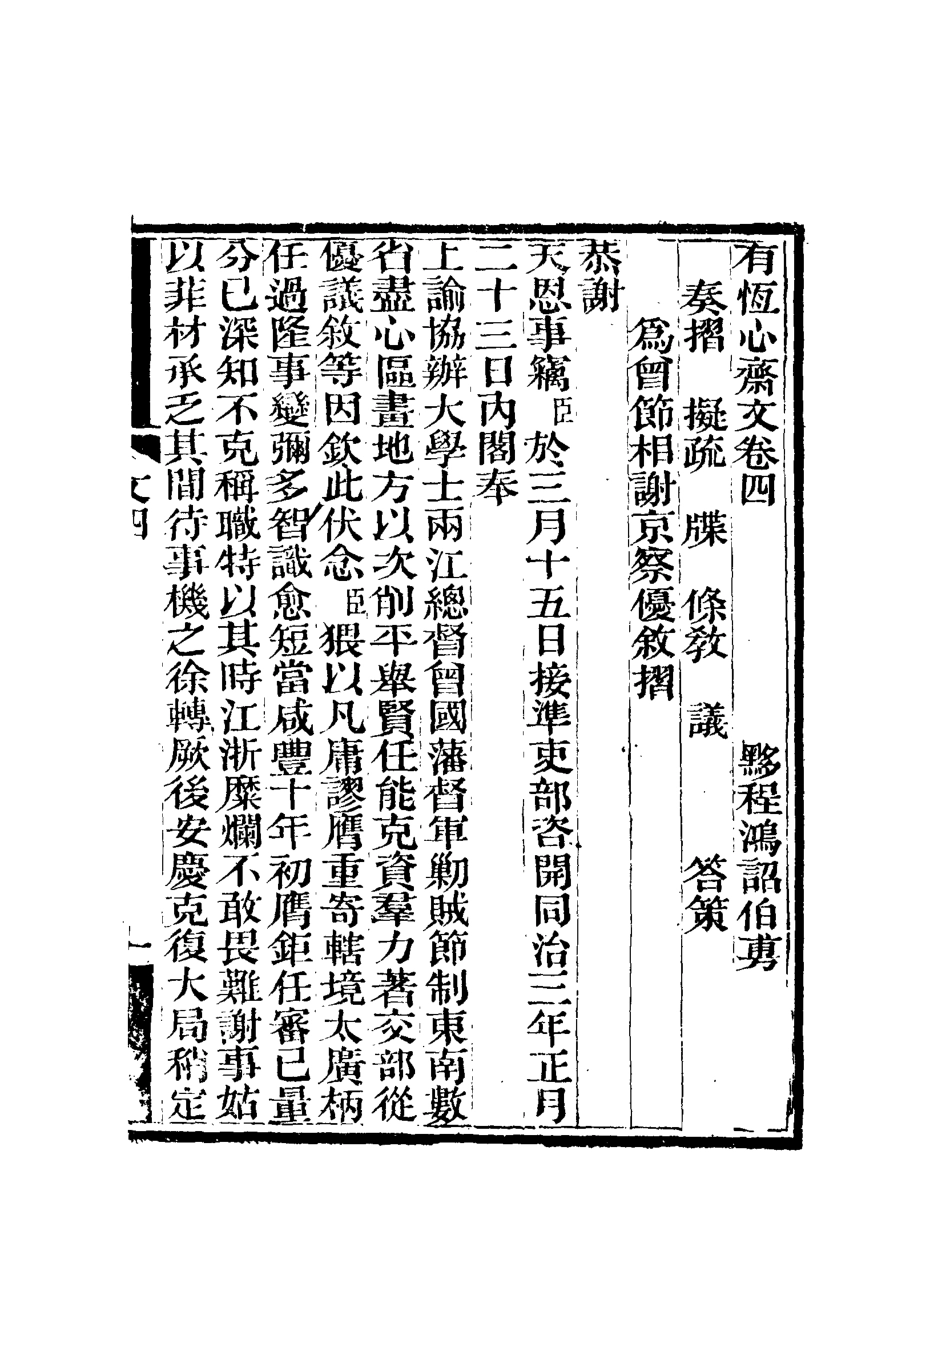 有恆心齋文卷四　　　　　　黟程鴻詔伯旉
奏摺　擬疏　牒　條教　議　　　答策
爲曾節相謝京察優敘摺
恭謝
天恩事竊臣於三月十五日接準吏部咨開同治三年正月
二十三日內閣奉
上諭協辦大學士兩江總督曾國藩督軍勦賊節制東南數
省盡心區畫地方以次削平舉賢任能克資羣力著交部從
優議敘等因欽此伏念臣猥以凡庸謬膺重寄轄境太廣柄
任過隆事變彌多智識愈短當咸豐十年初膺鉅任審已量
分已深知不克稱職特以其時江浙糜爛不敢畏難謝事姑
以非材承乏其間待事機之徐轉厥後安慶克復大局稍定
文四
一